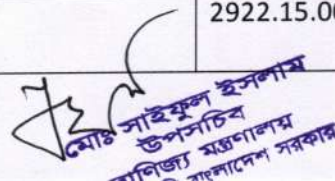 2922.15.00
মোঃ সাইফুল ইসলাম
উপসচিব
বাণিজ্য মন্ত্রণালয়
বাংলাদেশ সরকার